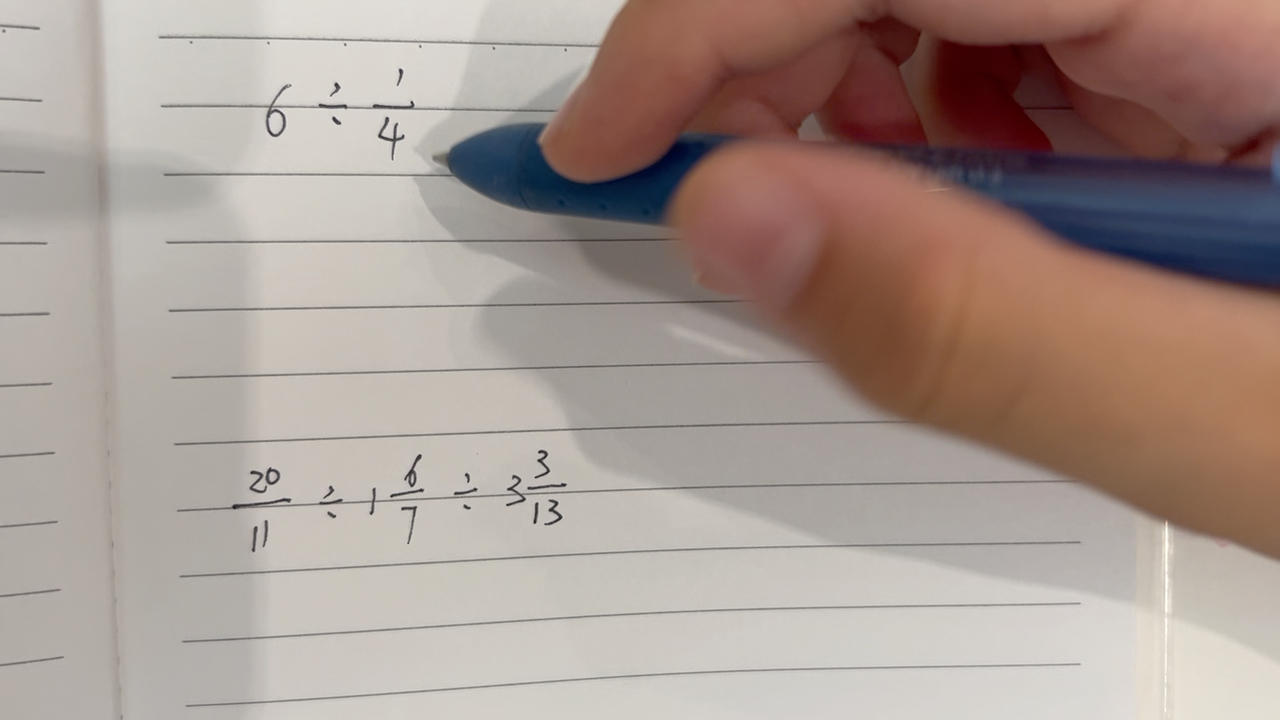 6 ÷ 1/4
20/11 ÷ 1 6/7 ÷ 3 3/13